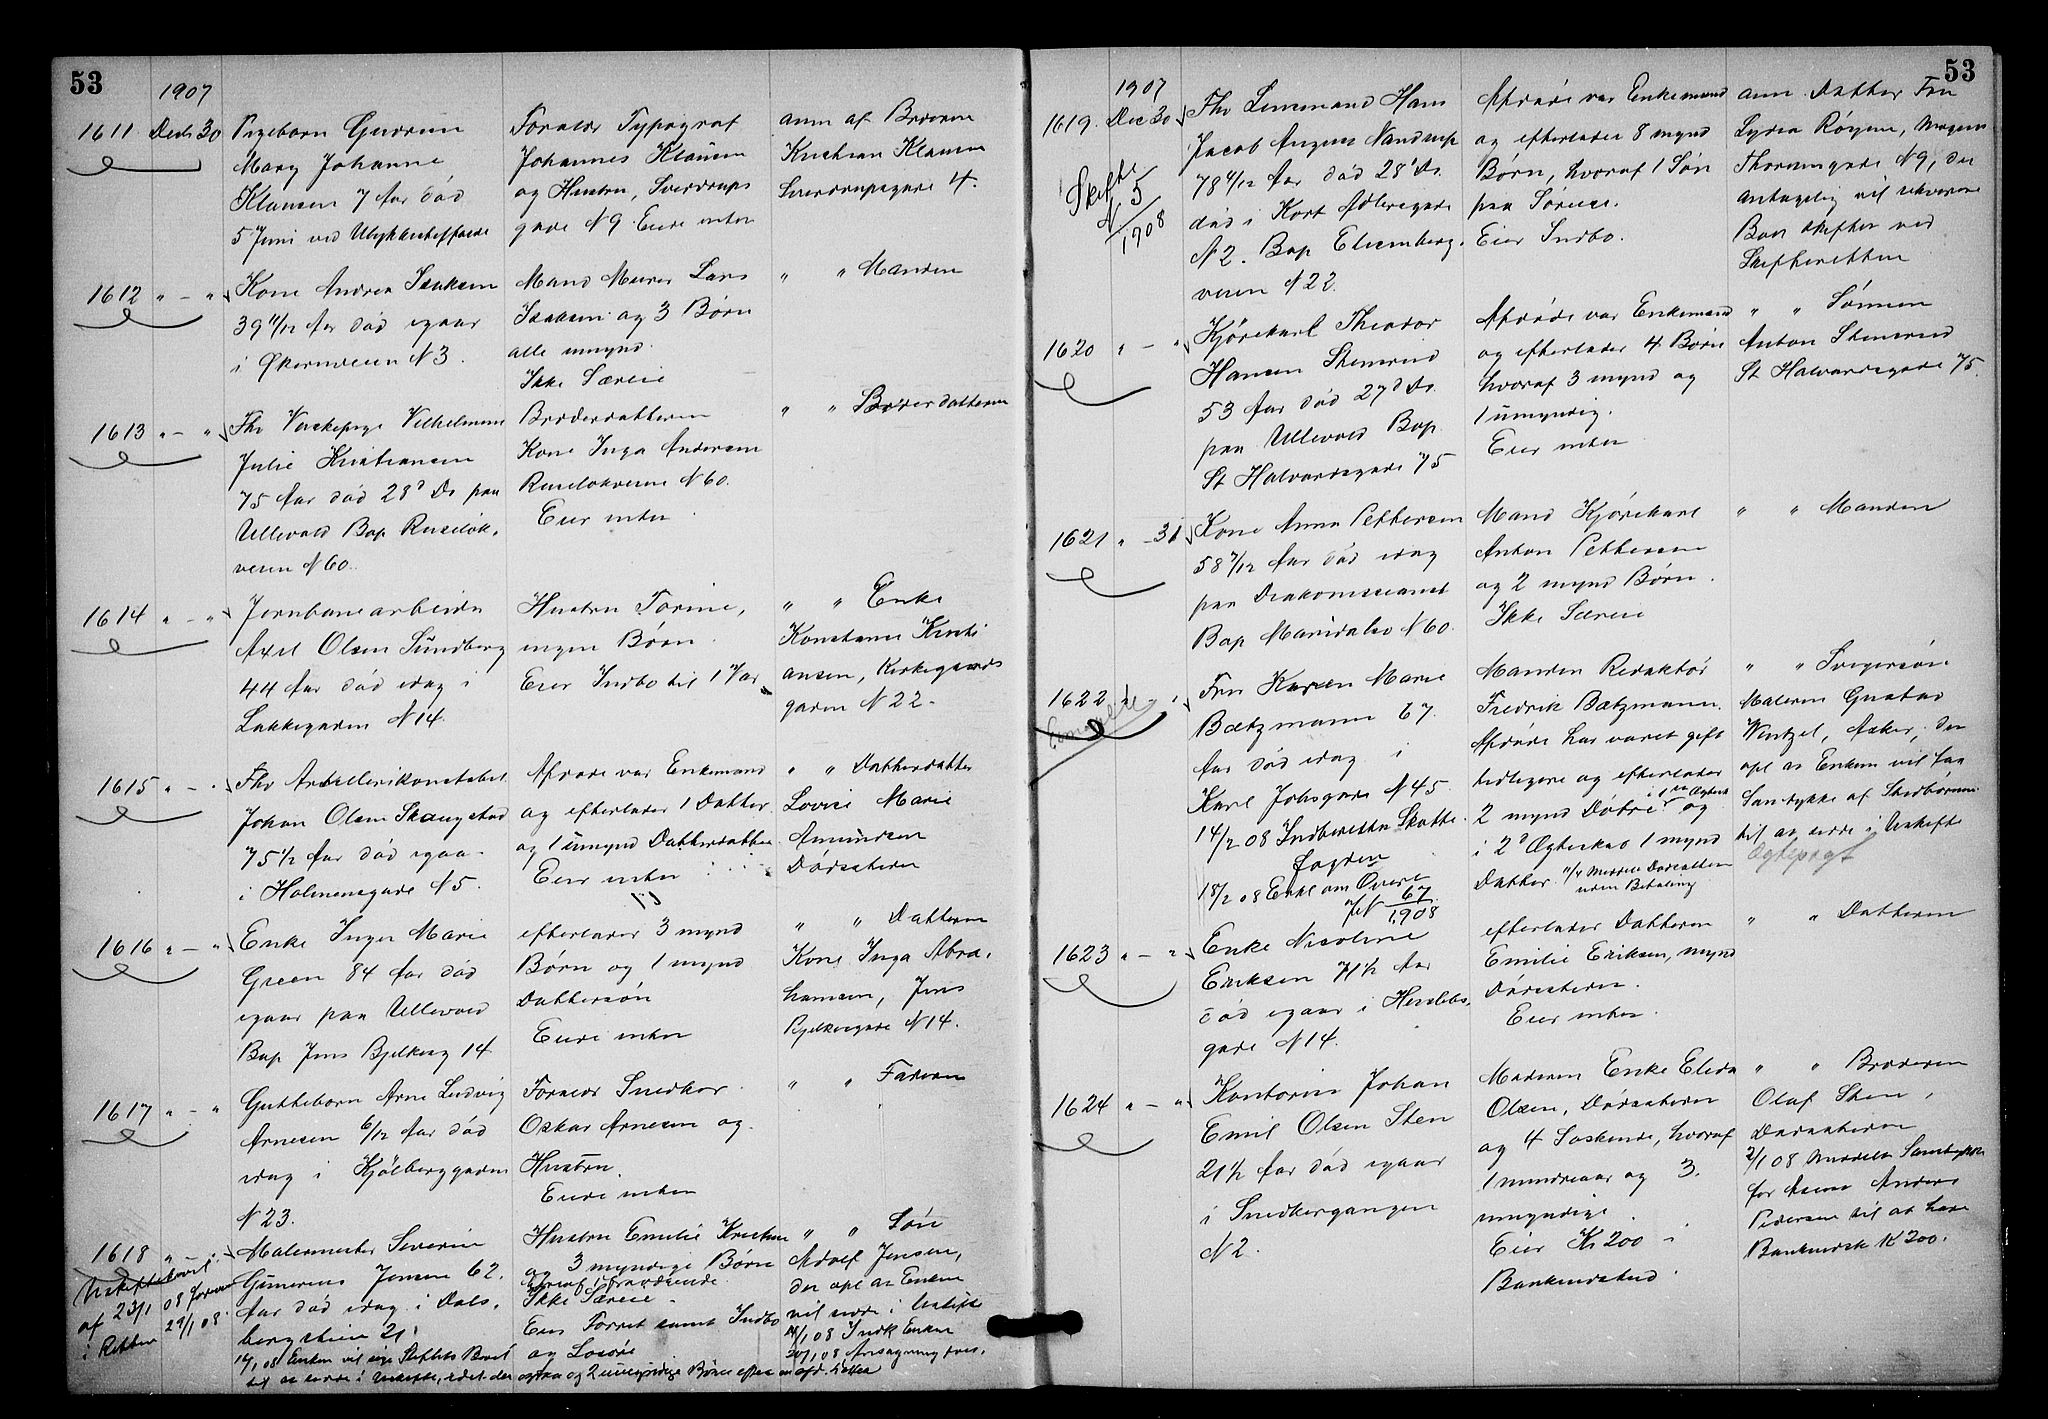 53
1907
1611 Decbr 30 Pigebarn Gudrun
Mary Johanne
Klausen 7 Aar død
5 Juni ved Ulykkestilfælde
Forældr Typograf
Johannes Klausen
og Hustru, Sverdrups
gade N 9. Eiede intet
anm af Broderen
Kristian Klausen
Sverdrupsgade 4.
1612 " — " Kone Andrea Isaksen
39 11/12 Aar død igaar
i Økernveien N 3.
Mand Murer Lars
Isaksen og 3 Børn
alle umynd.
Ikke Særeie
" " Manden
1613 " — " Fhv Vaskepige Vilhelmine
Julie Kristiansen
75 Aar død 28d Ds paa
Ullevold Bop Ruseløk-
veien N 60.
Broderdatteren
Kone Inga Andersen
Ruseløkveien N 60.
Eier intet
" " Broderdatteren
1614 " — " Jernbanearbeider
Axel Olsen Sundberg
44 Aar død idag i
Lakkegaden N 14.
Hustru Torine,
ingen Børn.
Eier Indbo til 1 Vær
" " Enke
Konstanse Kristi
ansen, Kirkegaards
gaden N 22.
1615 " — " Fhv Artillerikonstabel
Johan Olsen Skaugstad
75 1/2 Aar død igaar
i Holmensgade N 5.
Afdøde var Enkemand
og efterlader 1 Datter
og 1 umynd Datterdatter
Eier intet
" " Datterdatter
Lovise Marie
Amundsen
Dødsstedet
1616 " — " Enke Inger Marie
Green 84 Aar død
igaar paa Ullevold
Bop Jens Bjelkesg 14
efterlader 3 mynd
Børn og 1 mynd
Dattersøn
Eiede intet
" " Datteren
Kone Inga Abra-
hamsen, Jens
Bjelkesgade N 14.
1617 " — " Guttebarn Arne Ludvig
Arnesen 6/12 Aar død
idag i Kjølberggaden
N 23.
Forældr Snedker
Oskar Arnesen og
Hustru.
Eiede intet
" " Faderen
1618 " — " Malermester Severin
Gunerius Jensen 62
Aar død idag i Dals-
bergstien 21
Hustru Emilie Kristine
og 3 myndige Børn
hvoraf 1 fraværende
Ikke Særeie
Eier Torret samt Indbo
og Løsøre
" " Søn
Adolf Jensen,
der opl at Enken
vil sidde i Uskifte
20/1 08 Ansøgning
Uskiftebevil.
af 23/1 08
i Retten 29/1 08.
14/1 08 Enken vil søge Skiftets Bevil
til at sidde i Uskifte, idet der ogsaa og 2 umyndige Børn efter en afd. Datter
53
1907
1619. Dec 30 Fhv Lensmand Hans
Jacob August Nandrup
78 4/12 Aar død 28' Ds.
død i Kort Adlersgade
N 2. Bop Elisenberg-
veien N 22.
Skifte
N 5
1908
Afdøde var Enkemand
og efterlader 8 mynd
Børn, hvoraf 1 Søn
paa Søreise.
Eier Indbo.
anm Datter Fru
Lydia Røyem, Magnus
Thoresensgade N 9, der
antagelig vil rekvirere
Boet skiftet ved
Skifteretten
1620 " — " Kjørekarl Theodor
Hansen Stensrud
53 Aar død 27d Ds
paa Ullevold Bop
St Halvardsgade 75
Afdøde var Enkemand
og efterlader 4 Børn
hvoraf 3 mynd og
1 umyndig.
Eier intet
" " Sønnen
Anton Stensrud
St Halvardsgade 75.
1621 " — 31 Kone Anna Pettersen
58 7/12 Aar død idag
paa Diakonissanst
Bop Maridalsv N 60.
Mand Kjørekarl
Anton Pettersen
og 2 mynd Børn.
Ikke Særeie
" " Manden
1622 " — " Fru Karen Marie
Bætzmann 67
Aar død idag i
Karl Johsgade N 45
14/2 08 Indberettes Skatte-
fogden
18/2 08
67
1908
Manden Redaktør
Fredrik Bætzmann.
Afdøde har været gift
tidligere og efterlader
2 mynd Døtre og
i 2d Ægteskab 1 mynd
Datter.
uden Betaling
" " Svigersøn
Maleren Gustav
Wentzel, Asker, der
opl at Enkem vil faa
Samtykke af Stedbørnene
til at sidde i Uskifte
Ægtepagt
1623 " — " Enke Nicoline
Eriksen 71 1/2 Aar
død igaar i Herslebs-
gade N 14.
efterlader Datteren
Emilie Eriksen, mynd
Dødsstedet.
Eier intet.
" " Datteren
1624 " — " Kontorist Johan
Emil Olsen Sten
21 1/2 Aar død igaar
i Snedkergangen
N 2.
Moderen Enke Elida
Olsen, Dødsstedet
og 4 Søskende, hvoraf
1 mindreaar og 3
umyndige.
Eier Kr 200 i
Bankindskud.
" " Broderen
Olaf Sten,
Dødsstedet
2/1 08 Meddelt Samtykke
for Anders
Pedersen til at hæve
Bankindsk Kr 200.